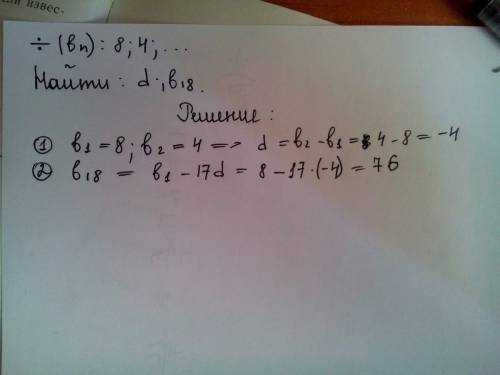 ий извес-
÷ (вn): 8; 4; ...
Найти: d; в18.
Решение:
① в1 = 8; в2 = 4 => d = в2 - в1 = 4 - 8 = -4
② в18 = в1 - 17d = 8 - 17·(-4) = 76